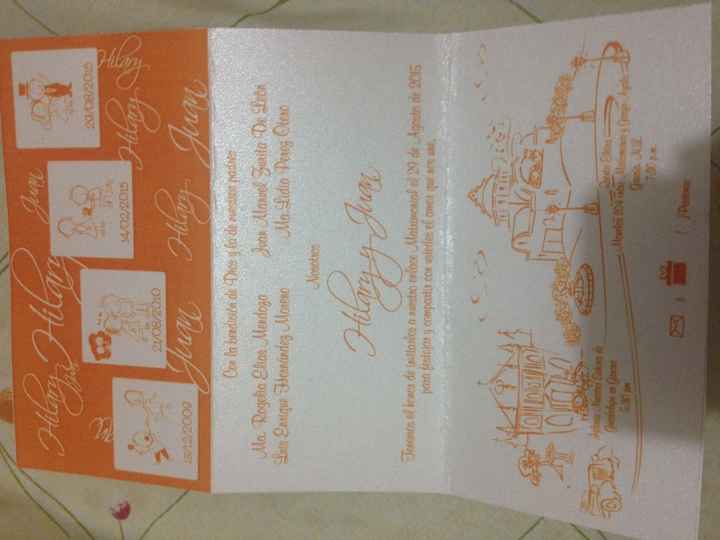 Hilary
Hilary
Juan
Juan
Hilary
Hilary
Hilary
Juan
29/08/2015
14/02/2015
21/08/2010
13/12/2009
Con la bendición de Dios y la de nuestros padres
Ma. Rogelia Elias Mendoza
Juan Manuel Zurita De León
Luis Enrique Hernández Moreno
Ma. Lidia Pérez Otero
Nosotros
Hilary y Juan
Tenemos el honor de invitarlos a nuestro enlace Matrimonial el 29 de Agosto de 2015
para festejar y compartir con ustedes el amor que nos une.
Nuestra Señora
de Guadalupe en Garcia
5:30 pm
Garcia, N.L.
7:30 p.m.